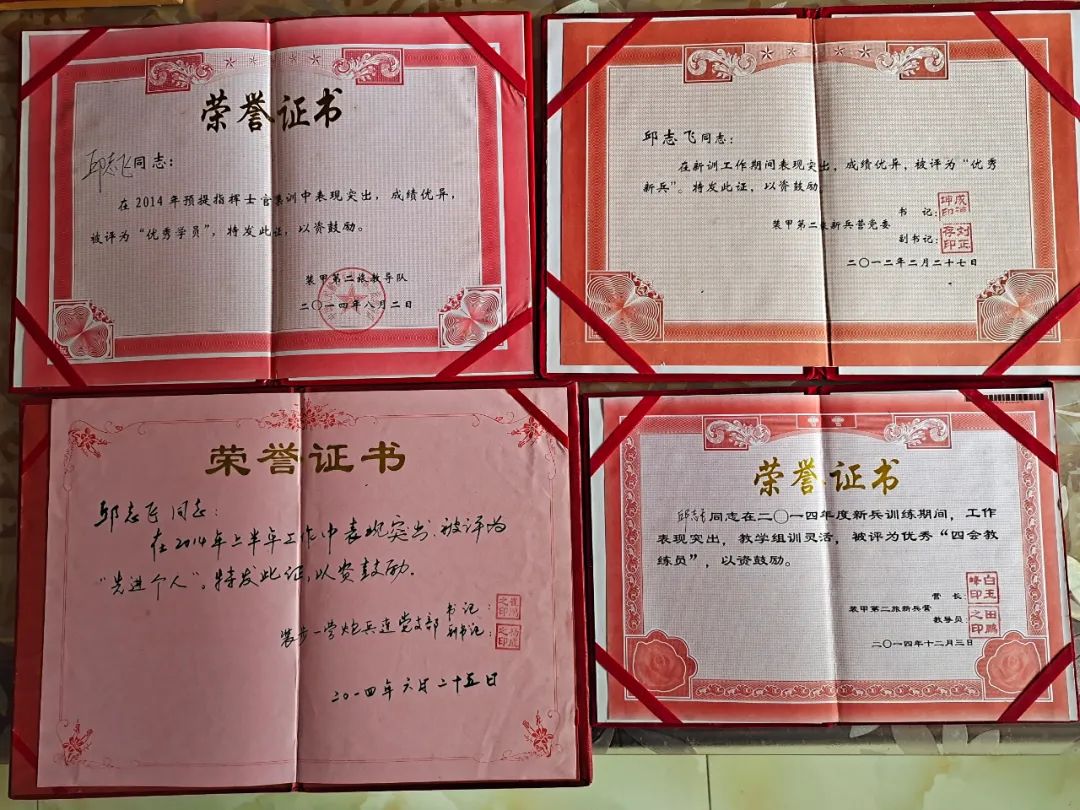 荣誉证书
邱志飞同志：
在2014年预提指挥士官集训中表现突出，成绩优异，
被评为“优秀学员”，特发此证，以资鼓励。
装甲第二旅教导队
二〇一四年八月二日
邱志飞同志：
在新训工作期间表现突出，成绩优异，被评为“优秀
新兵”。特发此证，以资鼓励
书记：
装甲第二旅新兵营党委
副书记：
刘正存印
二〇一二年二月二十七日
荣誉证书
邱志飞同志：
在2014年上半年工作中表现突出，被评为
“先进个人”。特发此证，以资鼓励。
书记：
装步一营炮兵连党支部
副书记：
二〇一四年六月二十五日
荣誉证书
邱志飞同志在二〇一四年度新兵训练期间，工作
表现突出，教学组训灵活，被评为优秀“四会教
练员”，以资鼓励。
营长：
白玉峰印
装甲第二旅新兵营
教导员：
田鹏之印
二〇一四年十二月三日